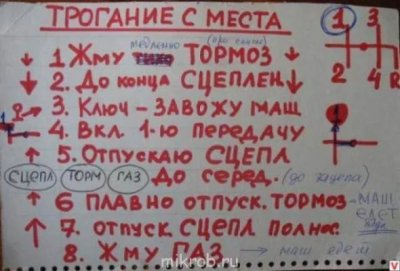 ТРОГАНИЕ С МЕСТА
1 3
2 4 R
медленно (про снятие)
1 Жму тихо ТОРМОЗ
2. До конца СЦЕПЛЕН
3. Ключ - ЗАВОЖУ МАШ
4. Вкл. 1-ю передачу
5. Отпускаю СЦЕПЛ
СЦЕПЛ ТОРМ ГАЗ До серед.
6 ПЛАВНО отпуск. ТОРМОЗ - МАШ ЕДЕТ
7. отпуск СЦЕПЛ полнос.
8. Жму ГАЗ → маш едет
mikrob.ru